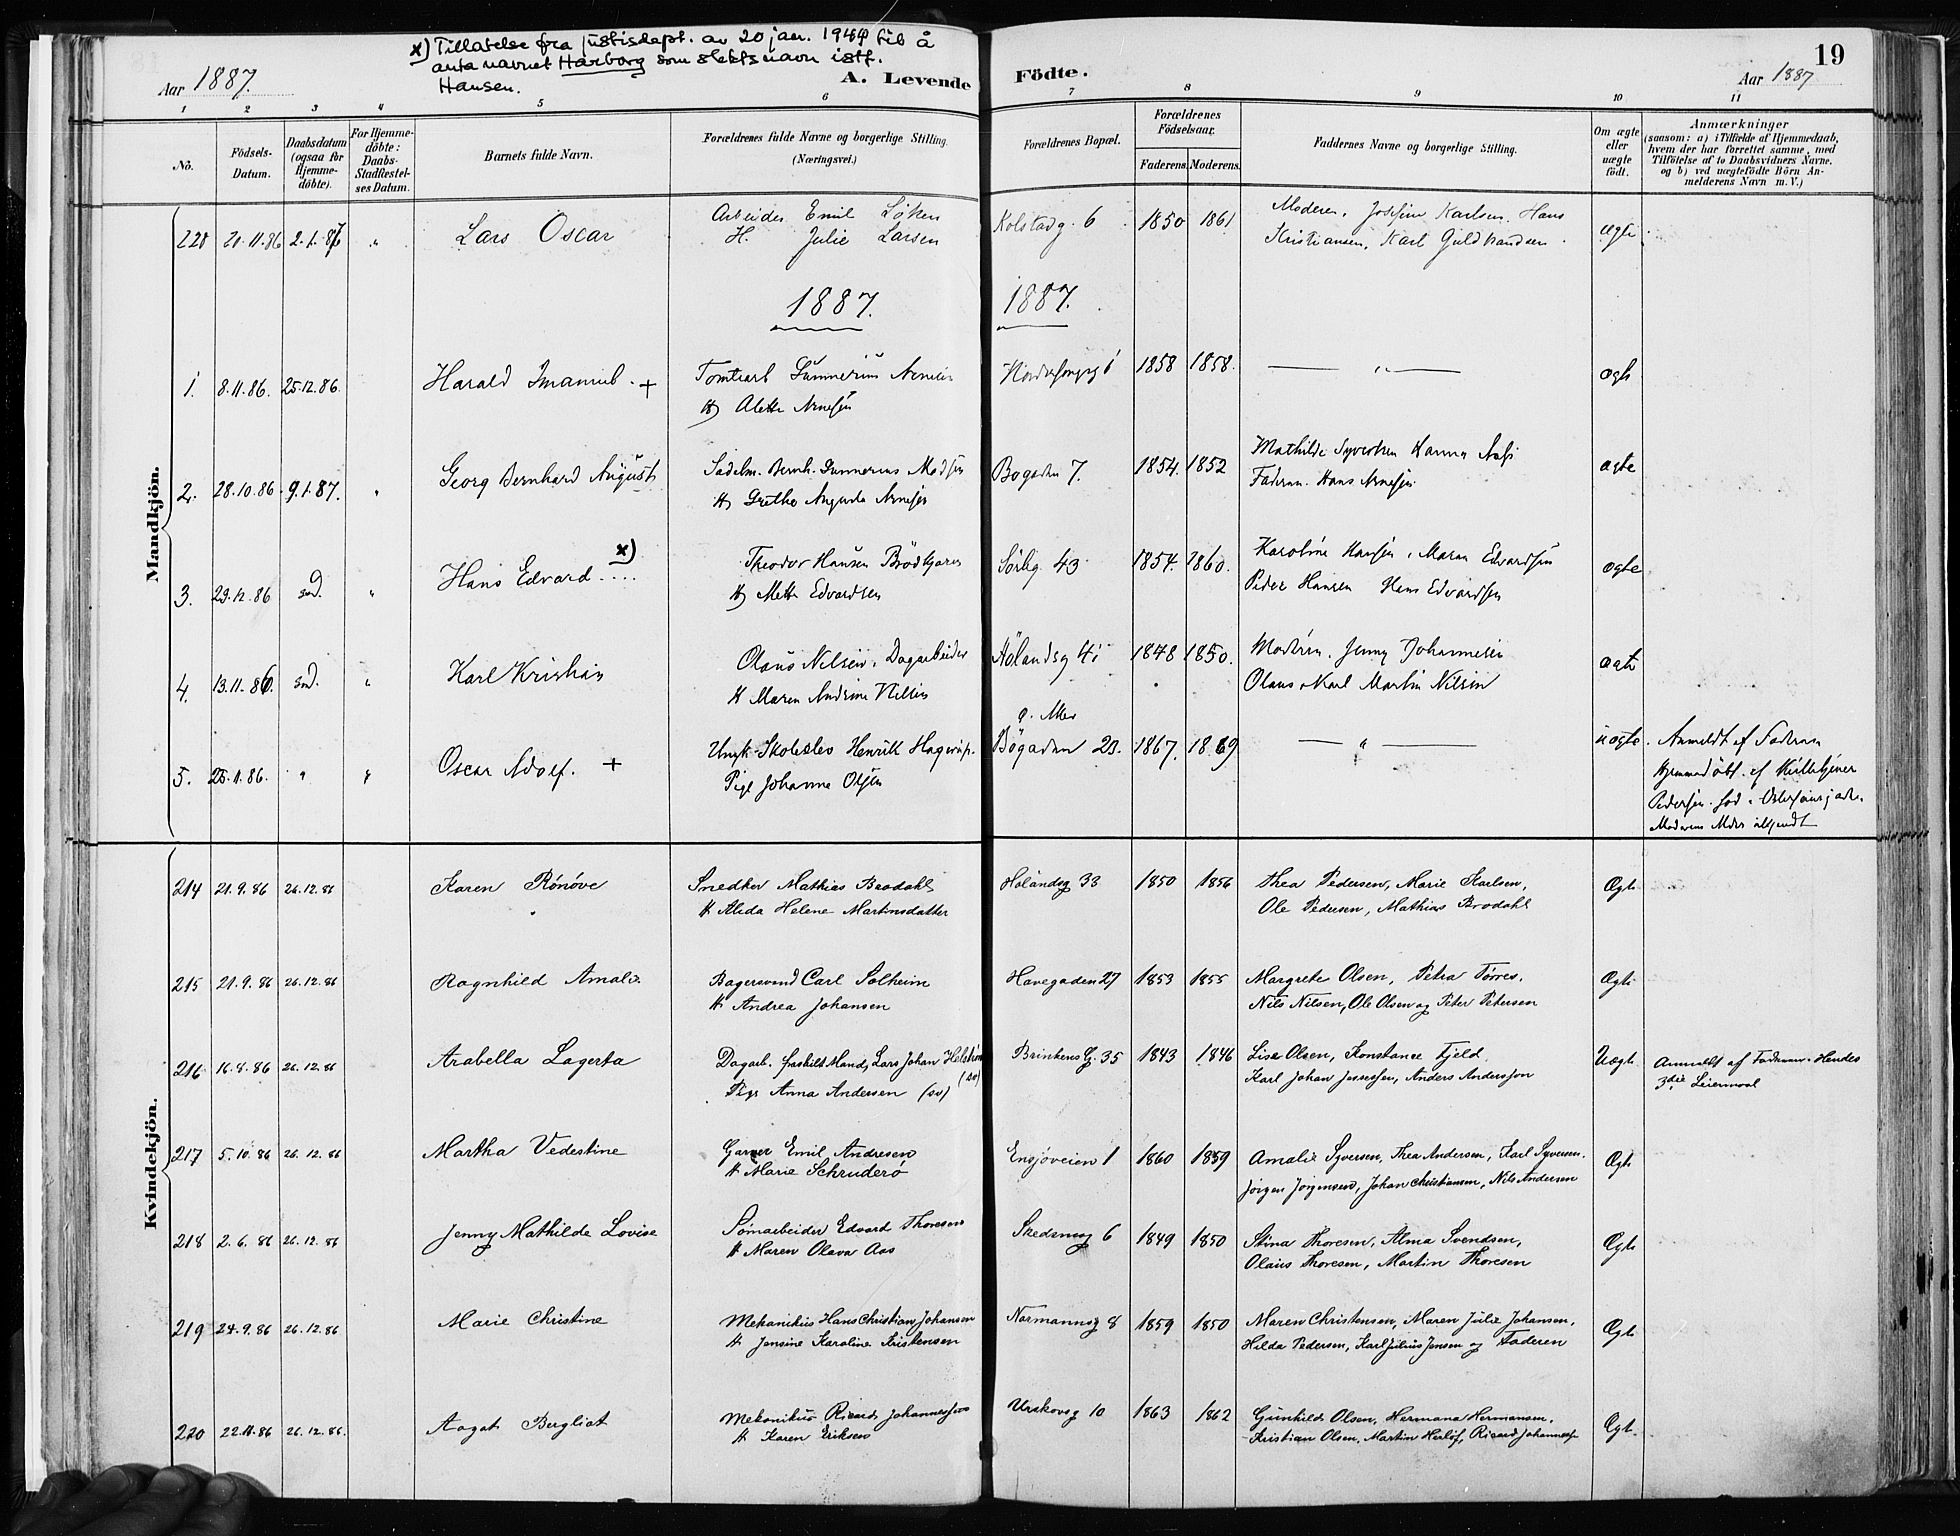 x) Tillatelse fra justisdept. av 20 jan. 1944 til å
anta navnet Harborg som slektsnavn istf.
Hansen.
Aar 1887.
A. Levende Födte.
Aar 1887
19
1 2 3 4 5 6 7 8 9 10 11
No.
Födsels-
Datum.
Daabsdatum
(ogsaa for
Hjemme-
döbte).
For Hjemme-
döbte:
Daabs-
Stadfæstel-
ses Datum.
Barnets fulde Navn.
Forældrenes fulde Navne og borgerlige Stilling.
(Næringsvei.)
Forældrenes Bopæl.
Forældrenes
Födselsaar.
Faderens. Moderens.
Faddernes Navne og borgerlige Stilling.
Om ægte
eller
uægte
födt.
Anmærkninger
(saasom: a) i Tilfælde af Hjemmedaab,
hvem der har forrettet samme, med
Tilföielse af to Daabsvidners Navne.
og b) ved uægtefödte Börn An-
melderens Navn m. V.)
Mandkjön.
228 21.11.86 2.1.87 " Lars Oscar
Arbeider Emil Löken
H. Julie Larsen
Kolstadg. 6 1850 1861
Moderen, Josefine Karlsen, Hans
Kristiansen, Karl Guldbrandsen.
ægte
1887. 1887.
1. 8.11.86. 25.12.86. Harald Imanuel. +
Gunnerius Arnesen
H Alette Arnesen
1858 1858.
— " —
ægte
2. 28.10.86 9.1.87. " Georg Bernhard August
Sadelm. Bernh. Gunnerius Madsen
H Grethe Augusta Arnesen
Bogaden 7. 1854. 1852
Mathilde Syvertsen Hanna
Faderen. Hans Arnesen
ægte
3. 29.12.86 sd. " Hans Edvard.... x)
Theodor Hansen Brödkjører
H Mette Edvardsen
Sörlig. 43 1854. 1860.
Karoline Hansen, Maren Edvardsen
Peder Hansen Hans Edvardsen
ægte
4. 13.11.86. sd. " Karl Kristian
Olaus Nilsen. Dagarbeider
H Maren Andrine Nilsen
Hölandsg 41 1848 1850.
Moderen. Jenny Johannesen
Olaus & Karl Martin Nilsen
ægte
5. 25.11.86. " " Oscar Adolf. +
Skoleelev Henrik Hagerup.
Pige Johanna Olsen
Bögaden 23. 1867. 1869
— " —
uægte.
Anmeldt af Faderen
Hjemmedöbt. af Kirketjener
Pedersen.
Kvindekjön.
214 21.9.86 26.12.86 Karen Rönöve
Snedker Mathias Brodahl
H Alida Helene Martinsdatter
Hölandsg 33 1850 1856
Thea Pedersen, Marie Karlsen,
Ole Pedersen, Mathias Brodahl
Ægte
215 21.9.86 26.12.86 Ragnhild Amalie
Bagersvend Carl Solheim
H Andrea Johansen
Havegaden 27 1853 1855
Margrete Olsen, Petra Törres,
Nils Nilsen, Ole Olsen og Peter Petersen
Ægte
216 16.8.86 26.12.86 Arabella Lagerta
Dagarb. fraskilt Mand, Lars Johan Helström
(sv)
Pige Anna Andersen (sv)
Brinkens G. 35 1843 1846
Lise Olsen, Konstance Fjeld,
Karl Johan Jossefsen, Anders Andersson
Uægte
Anmeldt af Faderen. Hendes
3die Leiermaal
217 5.10.86 26.12.86 Martha Vedestine
Garver Emil Andresen
H Marie Schruderö
Ensjöveien 1 1860 1859
Amalie Syversen, Thea Andersen, Karl Syversen,
Jörgen Jörgensen, Johan Christiansen, Nils Andersen
Ægte
218 2.6.86 26.12.86 Jenny Mathilde Lovise
Sömarbeider Edvard Thoresen
H Maren Olava Aas
Skedsmog 6 1849 1850
Stina Thoresen, Alma Svendsen,
Olaus Thoresen, Martin Thoresen
Ægte
219 24.9.86 26.12.86 Marie Christine
Mekanikus Hans Christian Johansen
H Jensine Karoline Kristensen
Normannsg 8 1859 1850
Maren Christensen, Maren Julie Johansen,
Hilda Pedersen, Karl Julius Jensen og Faderen
Ægte
220 22.11.86 26.12.86. Aagot Bergliot
Mekanikus Ricard Johannessen
H Karen Eriksen
Urskovsg 10 1863 1862
Gunhild Olsen, Hermana Hermansen,
Kristian Olsen, Martin Herlöf, Ricard Johannessen
Ægte.